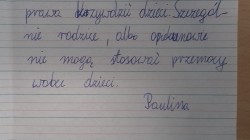 prawa krzywdzić dzieci. Szczegól-
nie rodzice, albo opiekunowie
nie mogą stosować przemocy
wobec dzieci.
Paulina